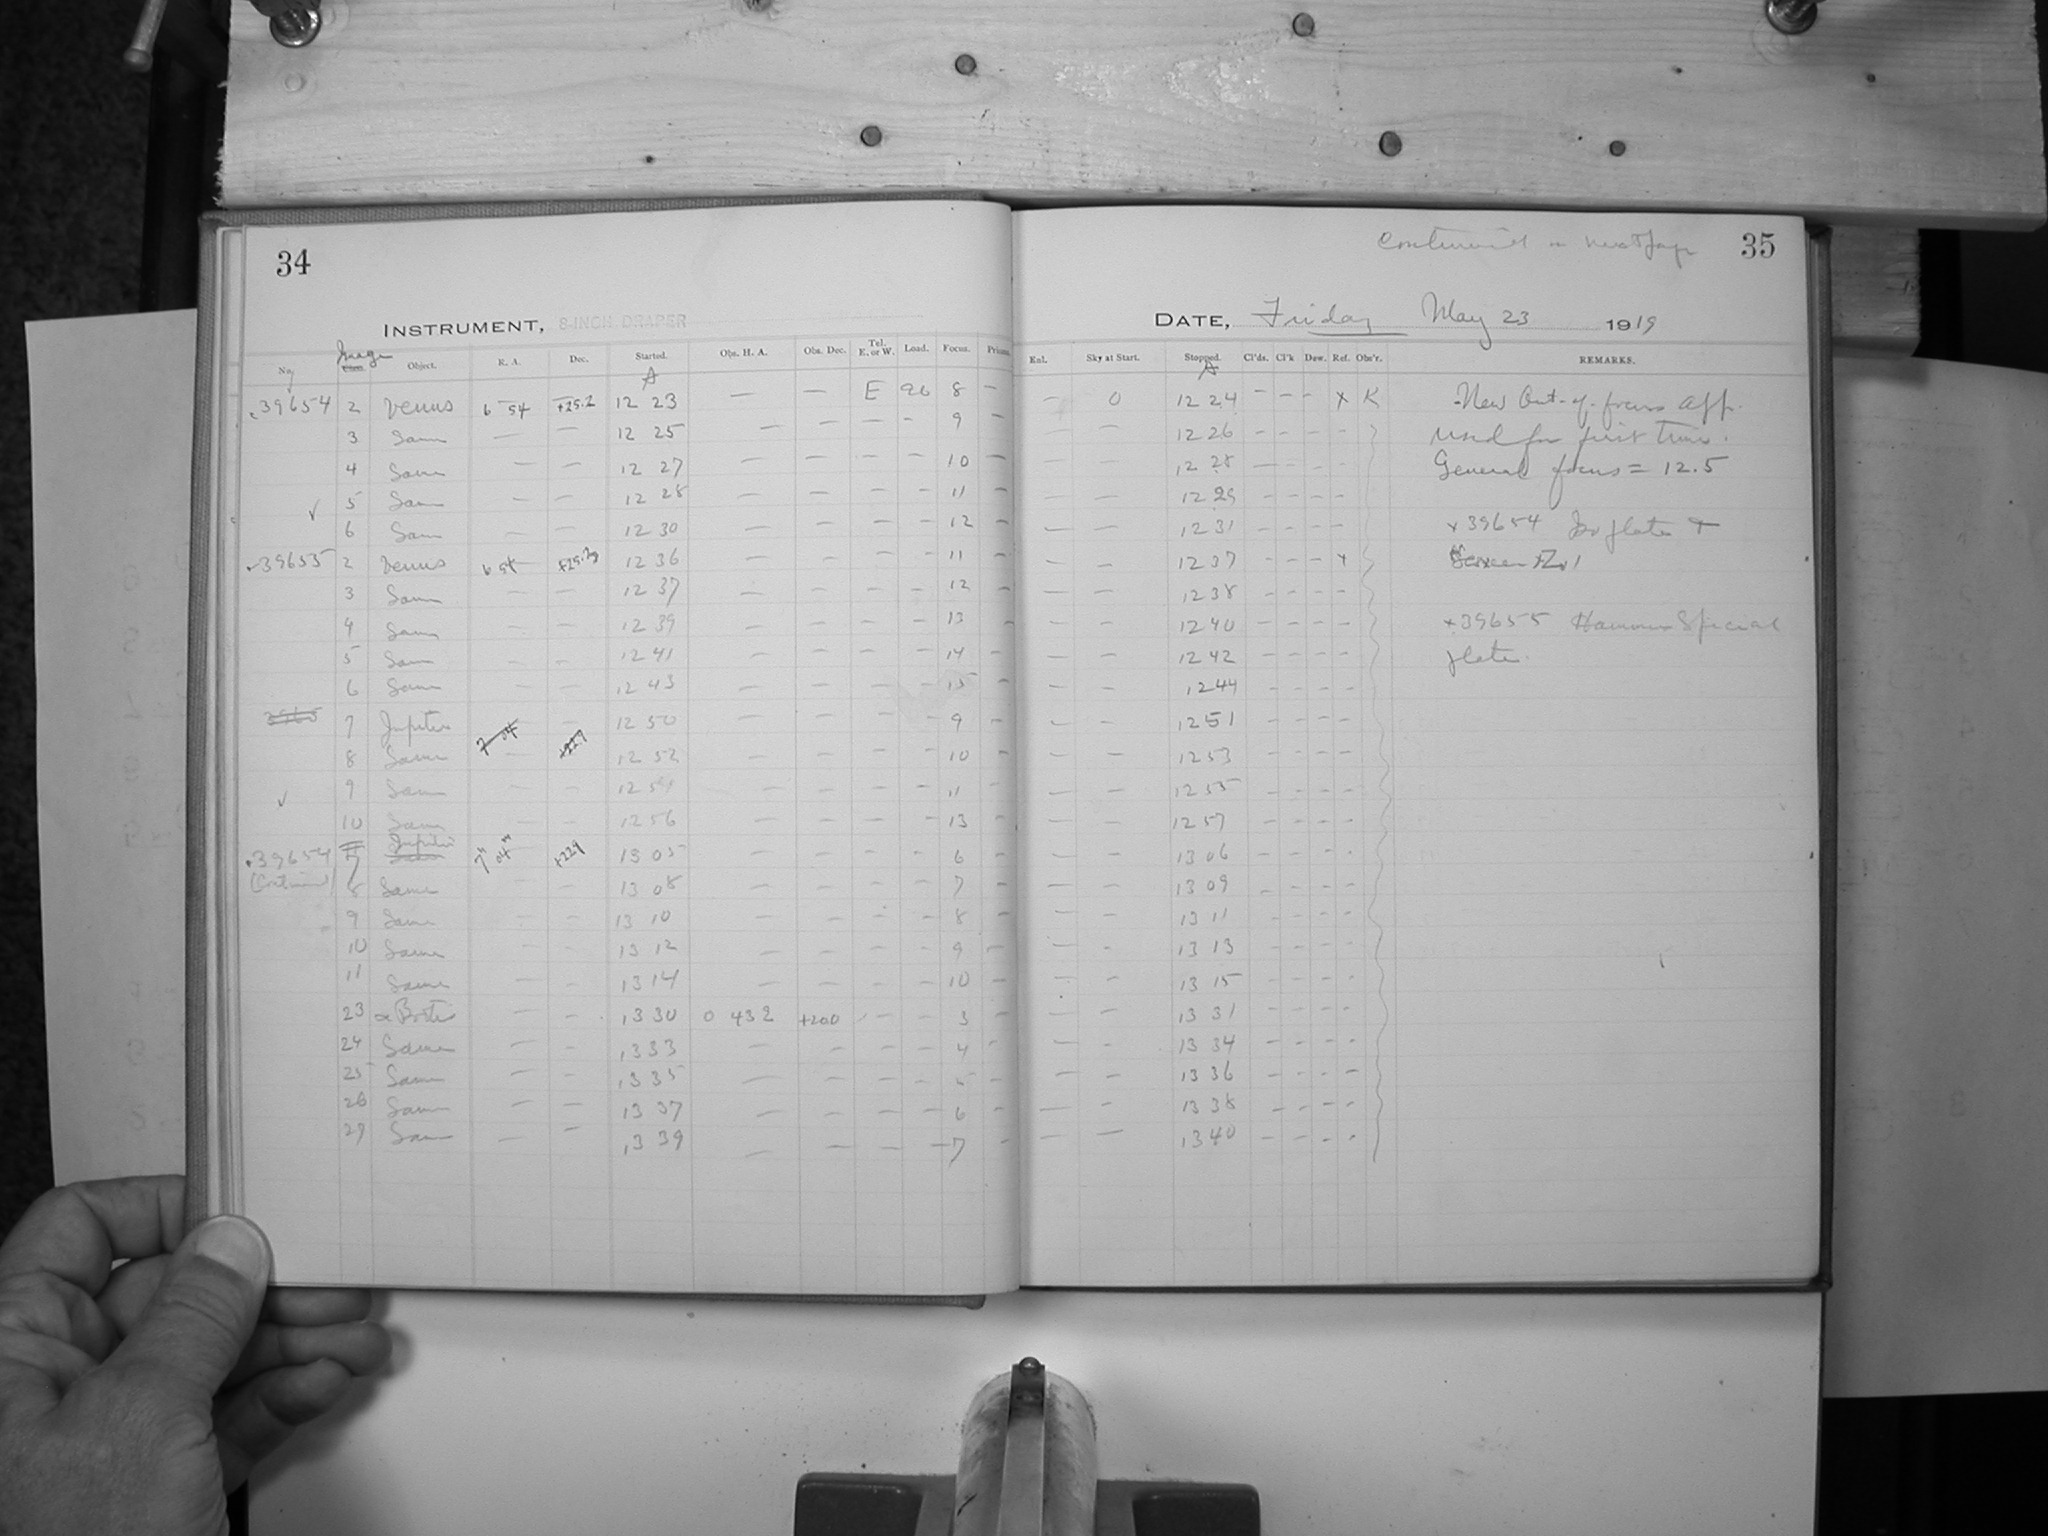 34
INSTRUMENT, 8-INCH DRAPER
No. Image Class. Object. R. A. Dec. Started. Obs. H. A. Obs. Dec. Tel. E. or W. Load. Focus. Prisms.
A
39654 2 Venus 6 54 +25.2 12 23 — — E 96 8 —
3 Same — — 12 25 — — — — 9 —
4 Same — — 12 27 — — — — 10 —
5 Same — — 12 28 — — — — 11 —
✓
6 Same — — 12 30 — — — — 12 —
39655 2 Venus 6 54 12 36 — — — — 11 —
3 Same — — 12 37 — — — — 12 —
4 Same — — 12 39 — — — — 13 —
5 Same — — 12 41 — — — — 14 —
6 Same — — 12 43 — — — — 15 —
7 Jupiter — 12 50 — — — — 9 —
7 04
8 Same — 12 52 — — — — 10 —
9 Same — — 12 54 — — — — 11 —
✓
10 Same — — 12 56 — — — — 13 —
39654 7 Jupiter 7h 04m +229 13 05 — — — — 6 —
(Continued) 8 Same — — 13 08 — — — — 7 —
9 Same — — 13 10 — — — — 8 —
10 Same — — 13 12 — — — — 9 —
11 Same — — 13 14 — — — — 10 —
23 α Bootis — — 13 30 0 432 +200 — — 3 —
24 Same — — 13 33 — — — — 4 —
25 Same — — 13 35 — — — — 5 —
26 Same — — 13 37 — — — — 6 —
27 Same — — 13 39 — — — — 7 —
Continued on next page 35
DATE, Friday May 23 1919
Enl. Sky at Start. Stopped. Cl'ds. Cl'k Dew. Ref. Obs'r. REMARKS.
A
— 0 12 24 — — — x K New Out-of-focus app.
— — 12 26 — — — — used for first time.
— — 12 28 — — — — General focus = 12.5
— — 12 29 — — — —
— — 12 31 — — — — x 39654 plate +
— — 12 37 — — — x
— — 12 38 — — — —
— — 12 40 — — — — x 39655 Hammer Special
— — 12 42 — — — — plate.
— — 12 44 — — — —
— — 12 51 — — — —
— — 12 53 — — — —
— — 12 55 — — — —
— — 12 57 — — — —
— — 13 06 — — — —
— — 13 09 — — — —
— — 13 11 — — — —
— — 13 13 — — — —
— — 13 15 — — — —
— — 13 31 — — — —
— — 13 34 — — — —
— — 13 36 — — — —
— — 13 38 — — — —
— — 13 40 — — — —